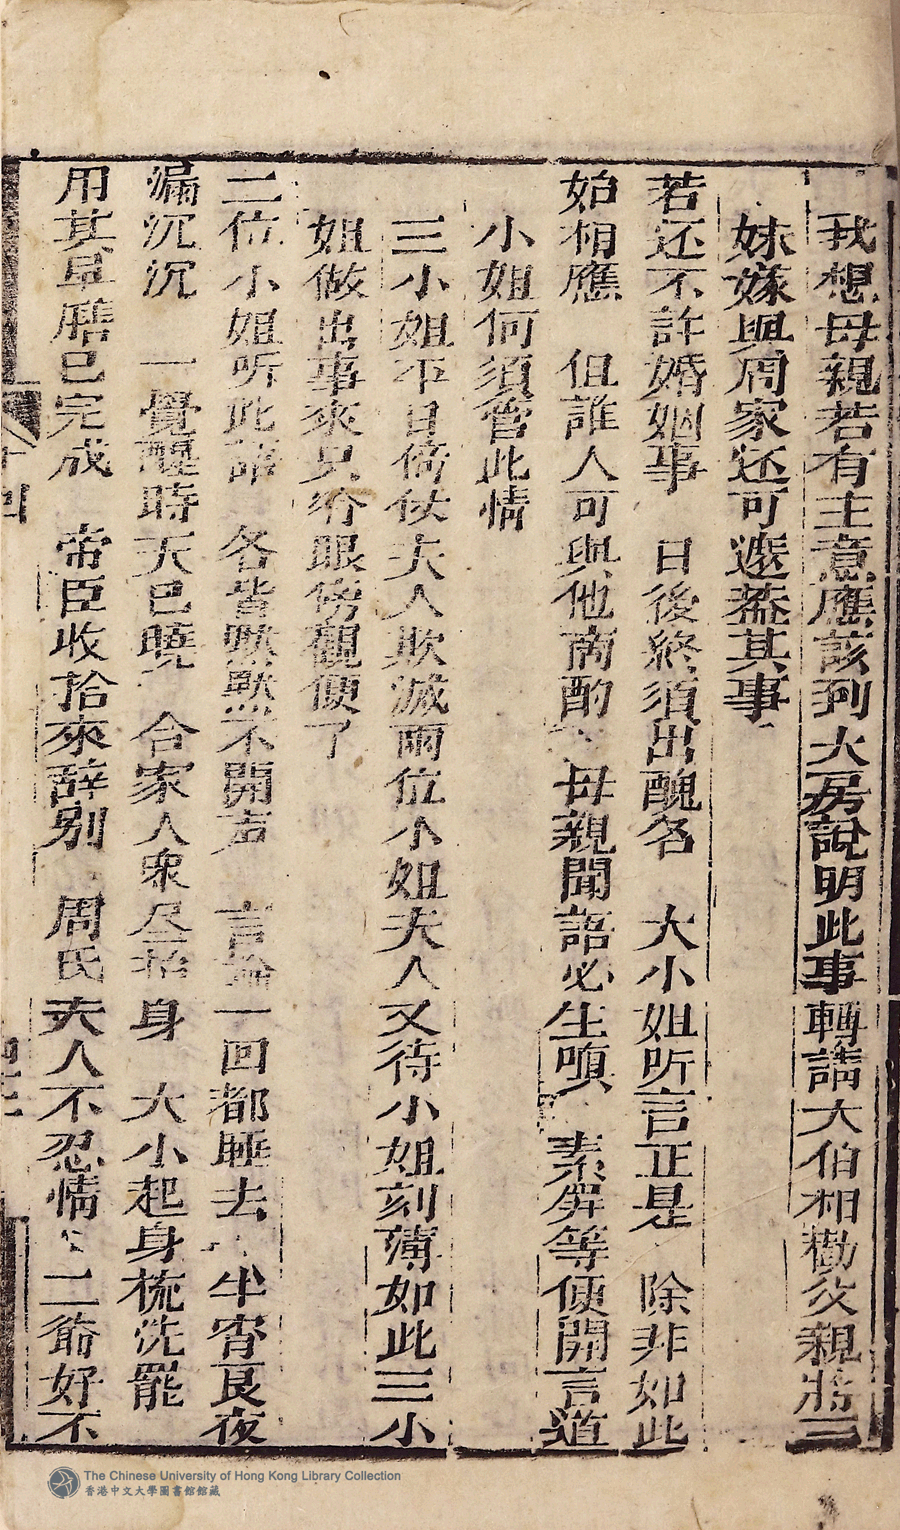 我想母親若有主意應該到大房說明此事轉請大伯相勸父親將三
妹嫁與周家还可遮葢其事
若还不許婚姻事 日後終須出醜名 大小姐听言正是 除非如此
始相應 但誰人可與他商酌 母親聞語必生嗔 素屏等便開言道
小姐何須管此情
三小姐平日倚仗夫人欺滅兩位小姐夫人又待小姐刻薄如此三小
姐做出事來只作眼傍觀便了
二位小姐听此語 各皆默默不開声 言論一回都睡去 半宵良夜
漏沉沉 一覺醒時天已曉 合家人衆尽抬身 大小起身梳洗罷
用其早膳已完成 帝臣收拾來辞別 周氏夫人不忍情 二爺好不
十四
The Chinese University of Hong Kong Library Collection
香港中文大學圖書館館藏